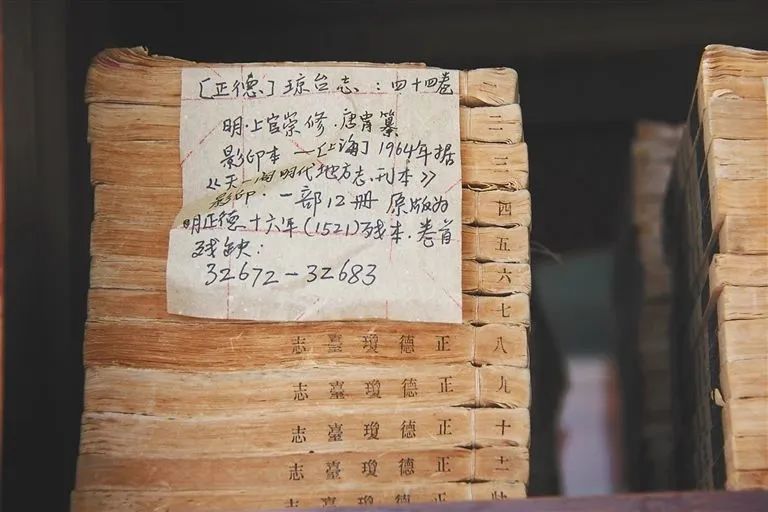 ［正德］琼台志：四十四卷
明·上官崇修·唐胄纂
影印本 —［上海］1964年据
《天 阁明代地方志.刊本》
影印·一部12册 原版为
明正德十六年(1521)残本.卷首
残缺：
32672—32683
一
二
三
四
五
六
七
八 正德瓊臺志
九 正德瓊臺志
十 正德瓊臺志
十一 正德瓊臺志
正德瓊臺志